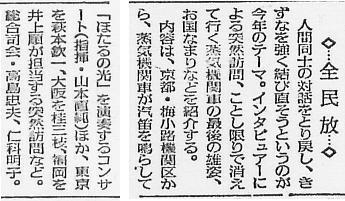 ◇…全民放…◇
人間同士の対話をとり戻し、き
ずなを強く結び直そうというのが
今年のテーマ。インタビュアーに
よる突然訪問、ことし限りで消え
て行く蒸気機関車の最後の雄姿、
お国なまりなどを紹介する。
内容は、京都・梅小路機関区か
ら、蒸気機関車が汽笛を鳴らして
「ほたるの光」を演奏するコンサ
ート(指揮・山本直純)ほか、東京
を萩本欽一、大阪を桂三枝、福岡を
井上順が担当する突然訪問など。
総合司会・高島忠夫、仁科明子。